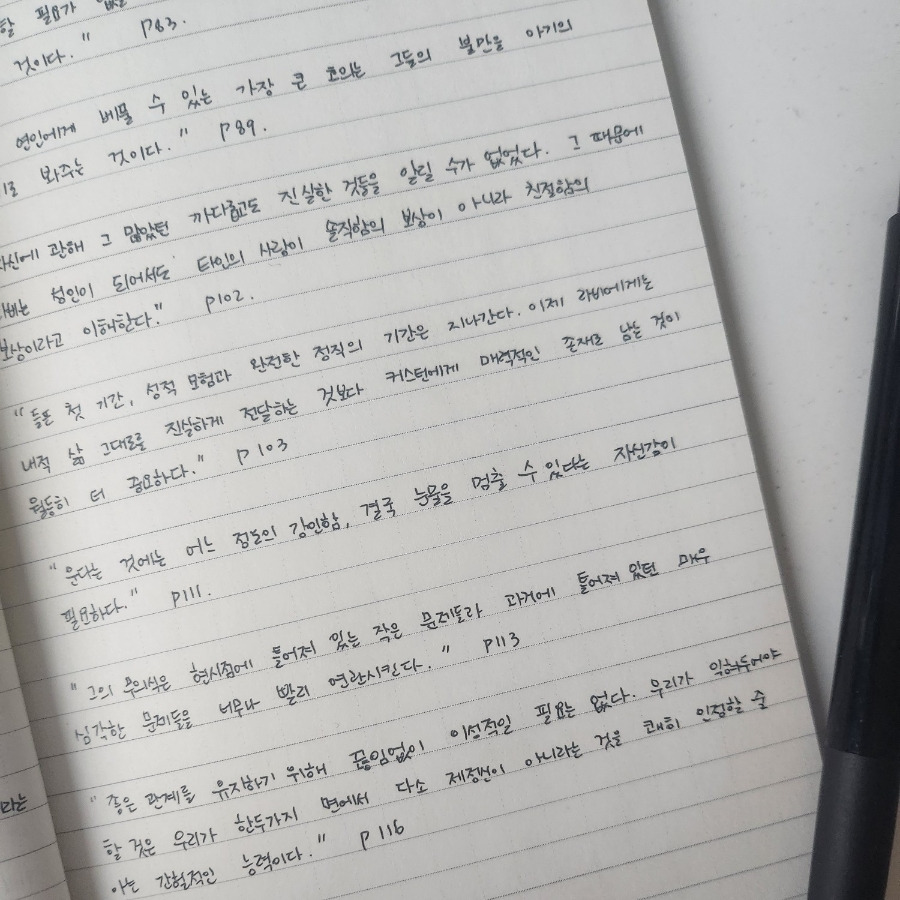 할 필요가
것이다." p83.
연인에게 베풀 수 있는 가장 큰 호의는 그들의 불만을 아기의
로 봐주는 것이다." p89.
자신에 관해 그 많았던 까다롭고도 진실한 것들을 알릴 수가 없었다. 그 때문에
라비는 성인이 되어서도 타인의 사랑이 솔직함의 보상이 아니라 친절함의
보상이라고 이해한다." p102.
"들뜬 첫 기간, 성적 모험과 완전한 정직의 기간은 지나간다. 이제 라비에게는
내적 삶 그대로를 진실하게 전달하는 것보다 커스틴에게 매력적인 존재로 남는 것이
월등히 더 중요하다." p103
"운다는 것에는 어느 정도의 강인함, 결국 눈물을 멈출 수 있다는 자신감이
필요하다." p111.
"그의 무의식은 현시점에 틀어져 있는 작은 문제들과 과거에 틀어져 있던 매우
심각한 문제들을 너무나 빨리 연관시킨다." p113
"좋은 관계를 유지하기 위해 끊임없이 이성적일 필요는 없다. 우리가 익혀두어야
할 것은 우리가 한두가지 면에서 다소 제정신이 아니라는 것을 쾌히 인정할 줄
아는 간헐적인 능력이다." p116
라는